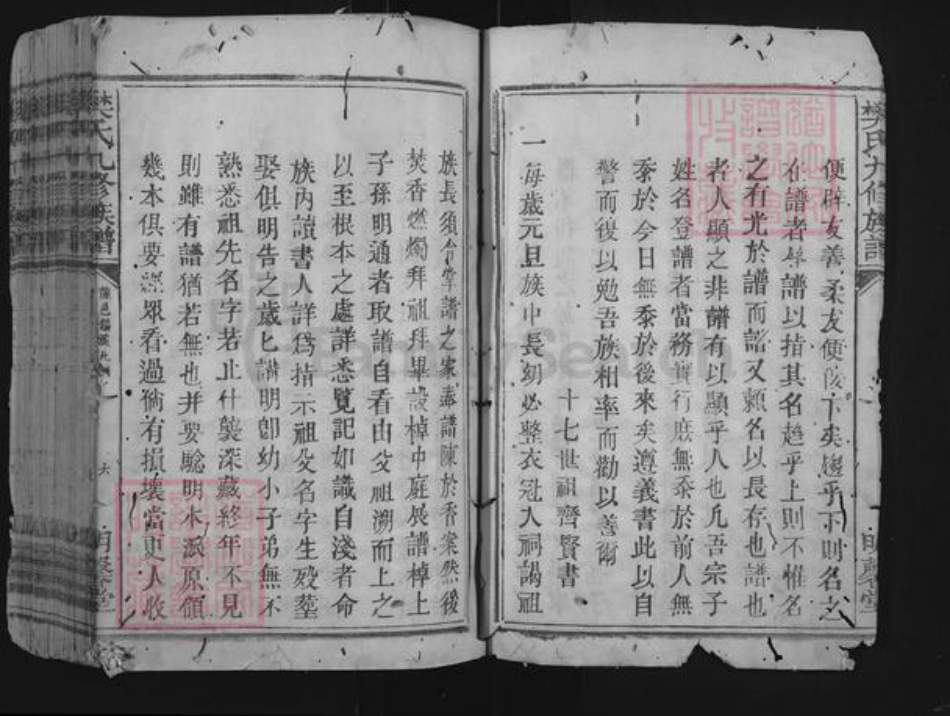 樊氏九修族譜
便辟友善柔友便佞下矣趨乎下則名之
在譜者舉譜以指其名趨乎上則不惟名
之有光於譜而譜又賴名以長存也譜也
者人顯之非譜有以顯乎人也凡吾宗子
姓名登譜者當務實行庶無忝於前人無
忝於今日無忝於後來矣遵義書此以自
警而復以勉吾族相率而勸以善爾
十七世祖齊賢書
一每歲元旦族中長幼必整衣冠入祠謁祖
族長須令掌譜之家奉譜陳於香案然後
焚香燃燭拜祖拜畢設棹中庭展譜棹上
子孫明通者取譜自看由父祖溯而上之
以至根本之處詳悉覽記如識自淺者命
族內讀書人詳爲指示祖父名字生歿塟
娶俱明告之歲匕講明卽幼小子弟無不
熟悉祖先名字若止什襲深藏終年不見
則雖有譜猶若無也并要驗明本派原領
幾本俱要經眾看過倘有損壞當更人收
樊氏九修族譜